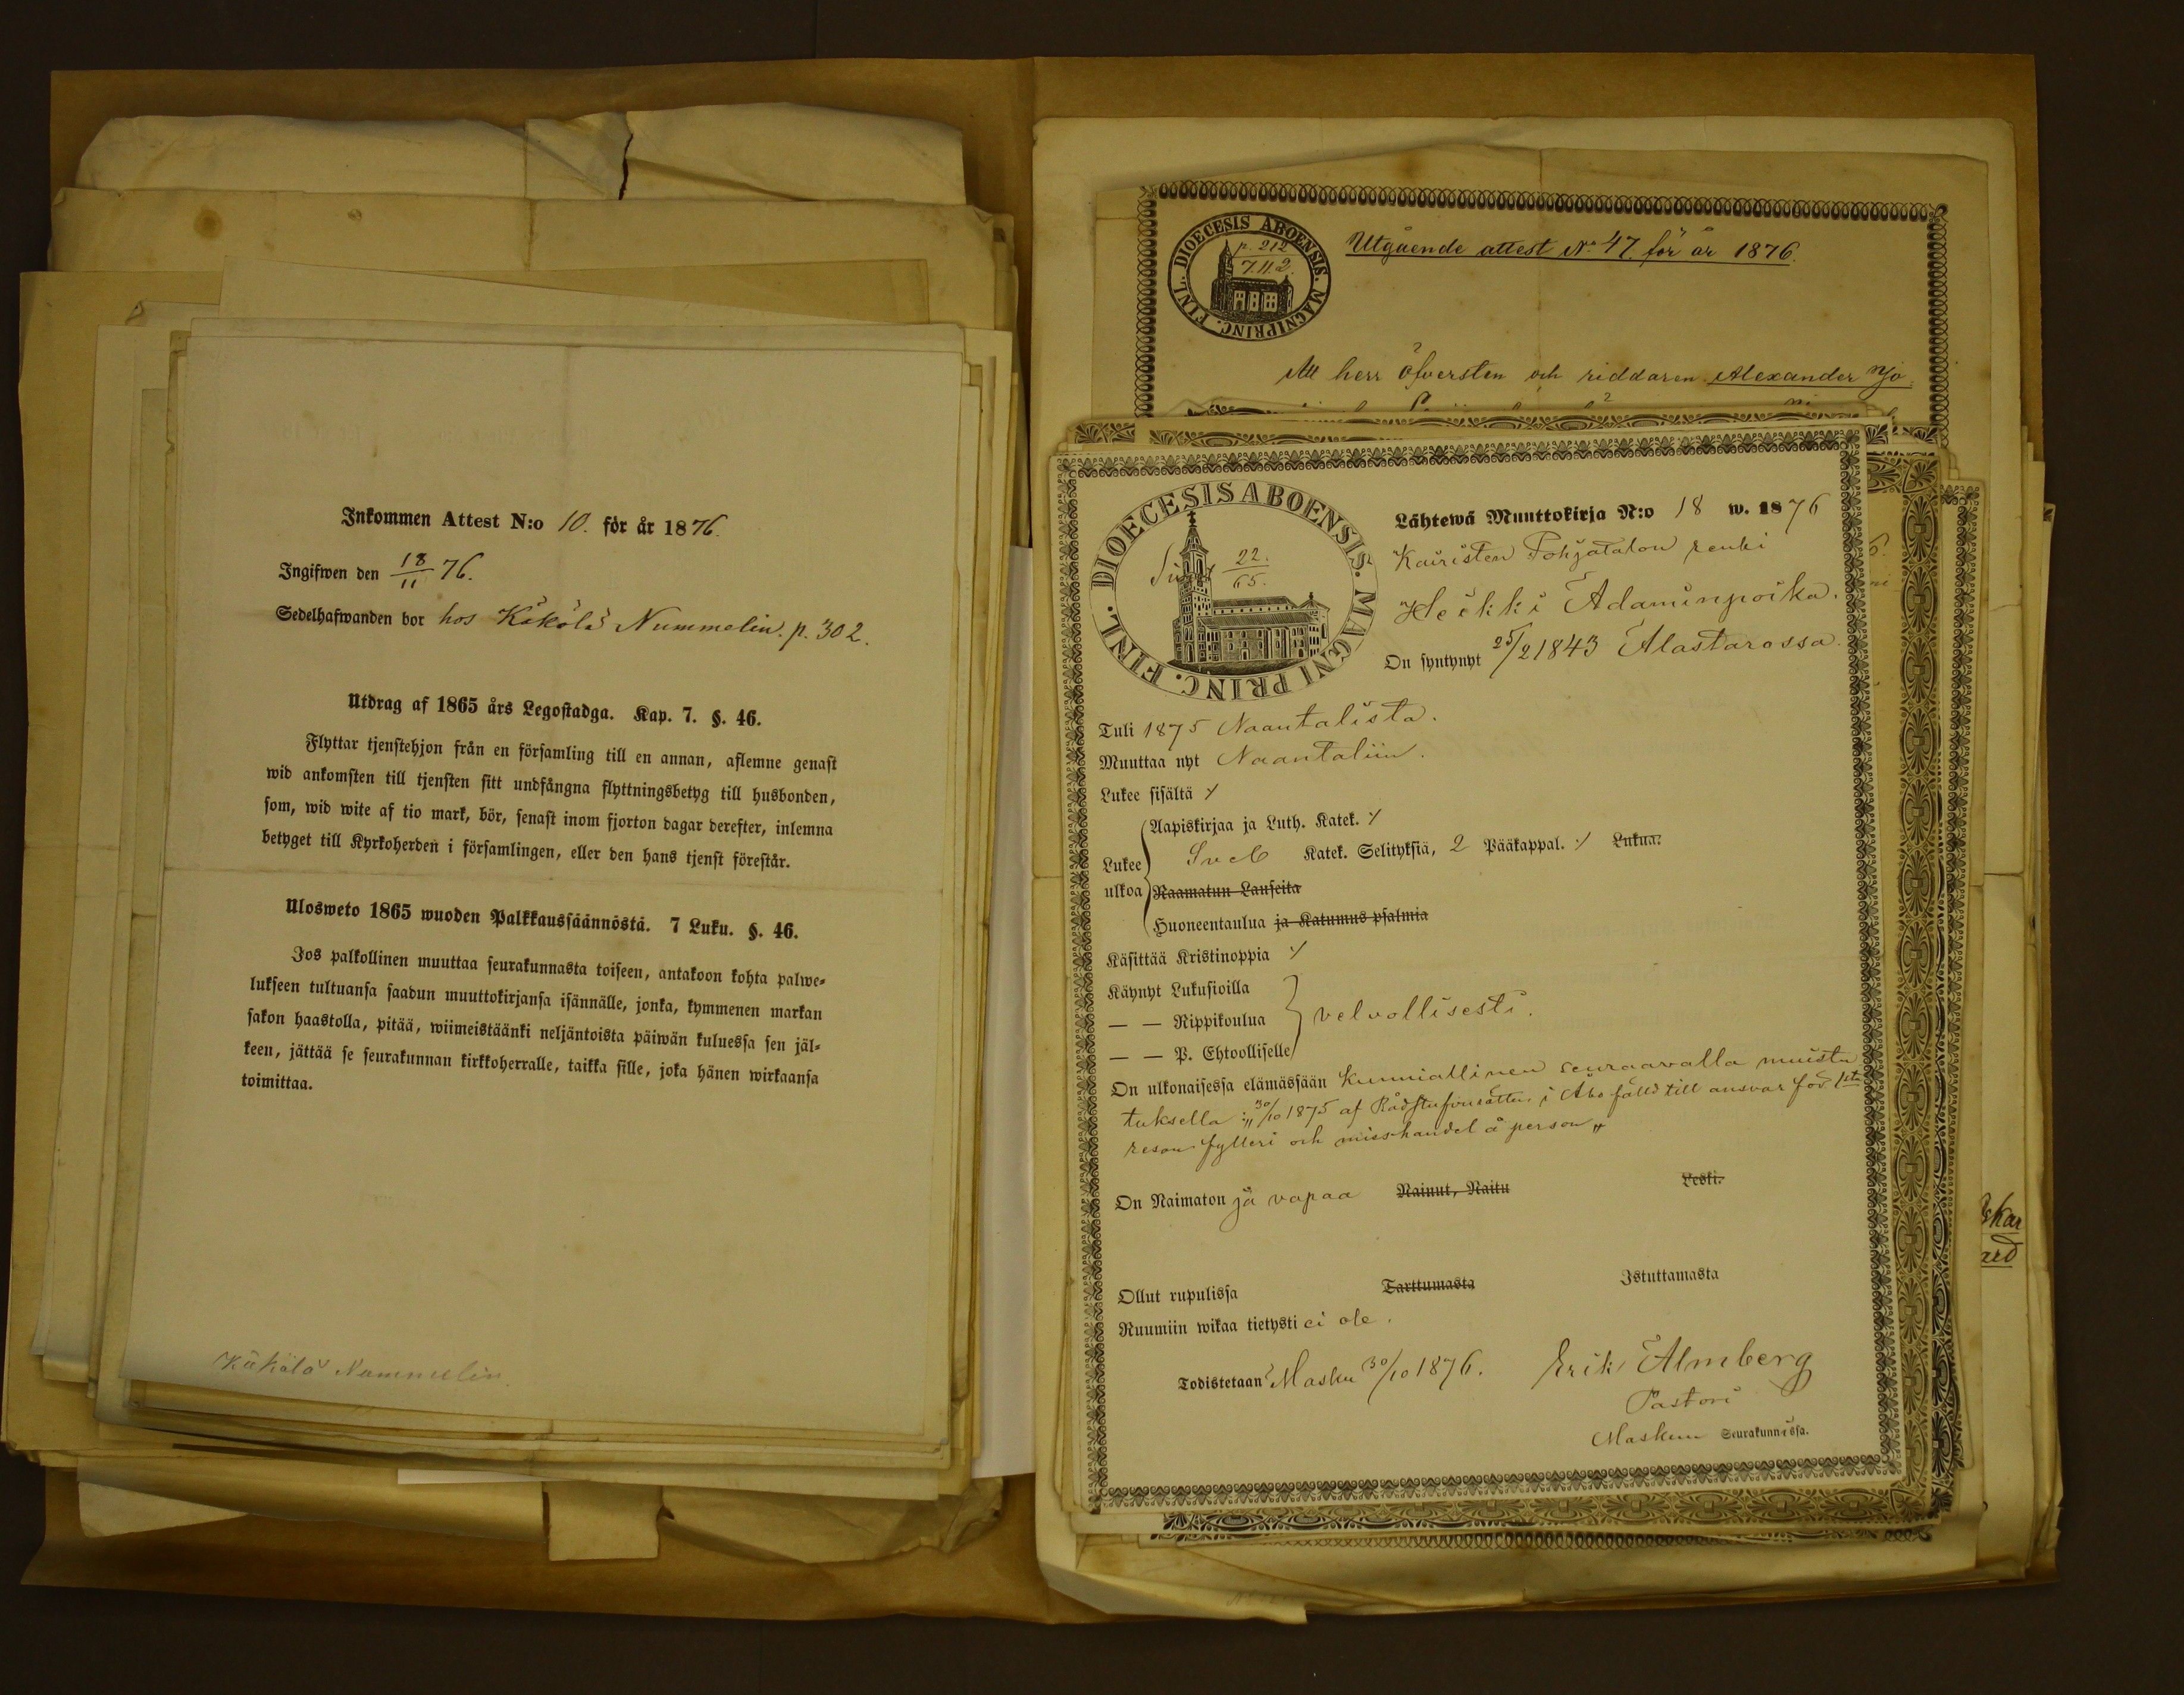 Inkommen Attest N:o 10. för år 1876.
Ingifwen den 18/11 76.
Sedelhafwanden bor hos Käkölä Nummelin. p. 302.
Utdrag af 1865 års Legostadga. Kap. 7. §. 46.
Flyttar tjenstehjon från en församling till en annan, aflemne genast
wid ankomsten till tjensten sitt undfångna flyttningsbetyg till husbonden,
som, wid wite af tio mark, bör, senast inom fjorton dagar derefter, inlemna
betyget till Kyrkoherden i församlingen, eller den hans tjenst förestår.
Ulosweto 1865 wuoden Palkkaussäännöstä. 7 Luku. §. 46.
Jos palkollinen muuttaa seurakunnasta toiseen, antakoon kohta palwe-
lukseen tultuansa saadun muuttokirjansa isännälle, jonka, kymmenen markan
sakon haastolla, pitää, wiimeistäänki neljäntoista päiwän kuluessa sen jäl-
keen, jättää se seurakunnan kirkkoherralle, taikka sille, joka hänen wirkaansa
toimittaa.
Käkälä Nummelin.
DIOECESIS ABOENSIS. MAGNI PRINC. FINL.
p. 212
7.11.2.
Utgående attest No 47. för år 1876.
Att herr Öfversten och riddaren Alexander
DIOECESIS ABOENSIS. MAGNI PRINC. FINL.
22.
65.
Lähtewä Muuttokirja N:o 18 w. 1876
Kairisten Pohjatalon renki
Heikki Adaminpoika.
On syntynyt 25/2 1843 Alastarossa.
Tuli 1875 Naantalista.
Muuttaa nyt Naantaliin.
Lukee sisältä ⁒
Lukee ulkoa
Aapiskirjaa ja Luth. Katek. ⁒
Katek. Selityksiä, 2 Pääkappal. ⁒ Lukua.
Raamatun Lauseita
Huoneentaulua ja Katumus psalmia
Käsittää Kristinoppia ⁒
Käynyt Lukusioilla
— — Rippikoulua velvollisesti.
— — P. Ehtoolliselle
On ulkonaisessa elämässään Kunniallinen seuraavalla muistu
tuksella: „30/10 1875 af Rådstufvurätten i Åbo fälld till ansvar för 1sta
resan fylleri och misshandel å person„
On Naimaton ja vapaa Nainut, Naitu Leski.
Ollut rupulissa Tarttumasta Istuttamasta
Ruumiin wikaa tietysti ei ole.
Todistetaan Masku 30/10 1876. Erik Almberg
Pastori
Maskun Seurakunnassa.